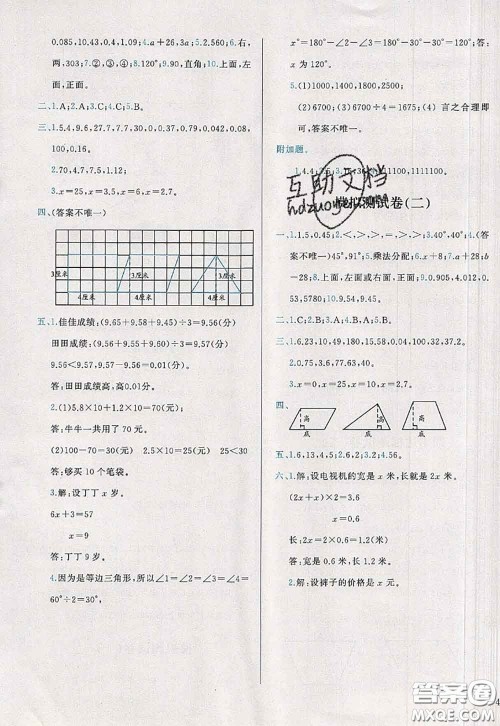 0.085,10.43,0.4,1.09;4.a+26,3a;5.2.560;6.右,
两,303;7.②,③,④;8.120°;9.90,直角;10.上面,左
面,正面。
二、1.A;2.A;3.C;4.C;5.B。
三、1.5.4,9.6,27.7,7.7,30,0.79,0.039,0.042,0.08,
100,0.16。
2.70,4.7,7.82,7.8,10.15,128。
3.x=25,x=3.7,x=2.7。
四、(答案不唯一)
3厘米
3厘米
3厘米
4厘米
4厘米
4厘米
五、1.佳佳成绩:(9.65+9.58+9.45)÷3=9.56(分)
田田成绩:(9.56+9.55+9.60)÷3=9.57(分)
9.56<9.57 9.57-9.56=0.01(分)
答:田田成绩高,高0.01分。
2.(1)5.8×10+1.2×10=70(元)
答:牛牛一共用了70元。
(2)100-70=30(元) 2.5×10=25(元) 25<30
答:够买10个笔袋。
3.解:设丁丁x岁。
6x+3=57
x=9
答:丁丁9岁。
4.因为是等边三角形,所以∠1=∠2=∠3=∠4=
60°÷2=30°。
x°=180°-∠2-∠3=180°-30°-30°=120°
答:x为120°。
5.(1)1000,1400,1800,2500
(2)6700;(3)6700÷4=1675;(4)言之合理即
可,答案不唯一。
附加题。
1.4.4;7.6,3.
11100,11100,1111
互助文档
hdzuoye
测试卷(二)
一、1.1.5,0.45,4.5;2.<,>,>,=,>,>;3.0.74;4.(答
案不唯一)45°,91°;5.乘法分配;6.x+8;7.a+28;b
-28;8.上面,左面或右面,正面;9.0.905,4.012,0.25,
0.5;10.9.54,9.45。
二、1.C;2.D;3.B;4.A;5.B。
三、1.6.3,23,10,49,180,15,0.58,0.04,10,100。
2.0.75,3.8,60,17,3.87,160。
3.x=0.6,x=16,x=2.7。
四、
高
底
高
底
高
底
五、1.6,13,4,5;2.1.2;3.2;4.56。
六、1.解:设电视机的宽是x米,长就是2x米。
(2x+x)×2=3.6
x=0.6
长:2x=2×0.6=1.2
答:宽是0.6米,长是1.2米。
2.解:设裤子的价格是x元。
答案圈
MXQE.COM